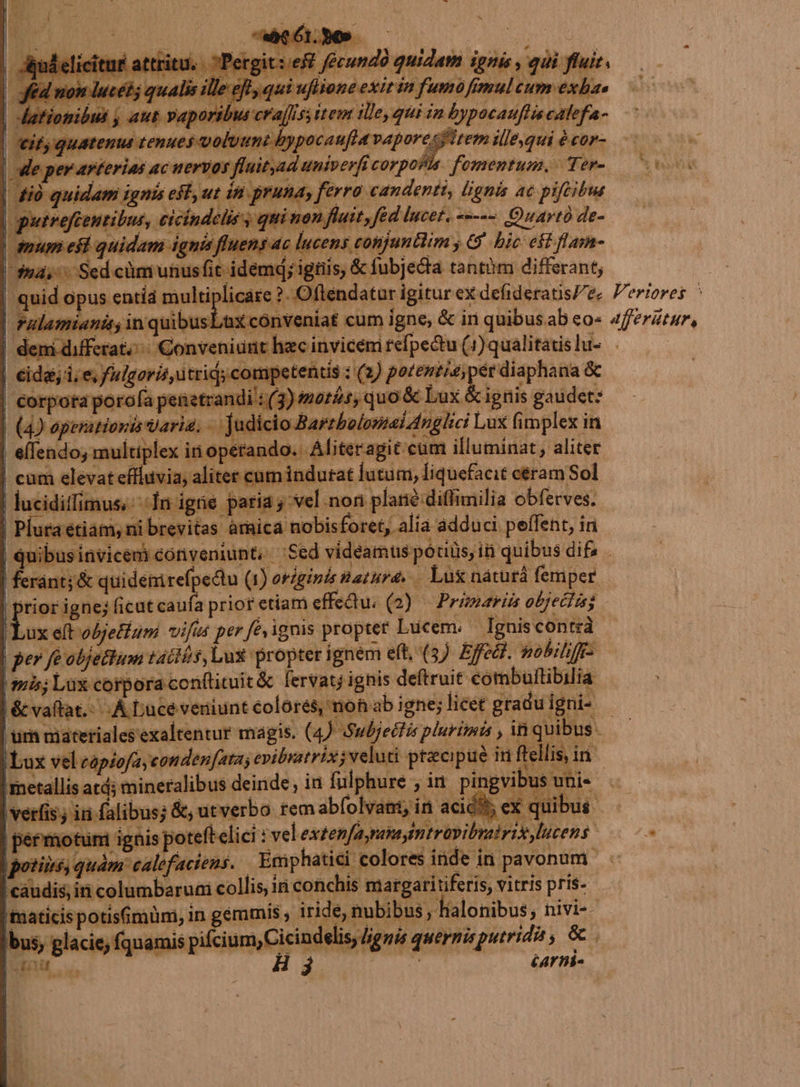 61.
quâ elicitur attritu. Pergit: est fecundò quidam ignis, qui fluit,
sed non lucet; qualis ille est, qui ustione exit in fumo simul cum exha-
lationibus, aut vaporibus crassis; item ille, qui in hypocaustis calefa-
cit, quatenus tenues volvunt hypocausta vapores; item ille, qui è cor-
de per arterias ac nervos fluit, ad universi corporis fomentum. Ter-
tiò quidam ignis est, ut in pruna, ferro candenti, lignis ac piscibus
putrescentibus, cicindelis, qui non fluit, sed lucet. ----- Quartò de-
mum est quidam ignis fluens ac lucens conjunctim, & hic est flam-
ma. Sed cùm unus sit idemq; igitis, & subjecta tantùm differant,
quid opus entia multiplicare? Ostendatur igitur ex desideratis Ve-
rulamianis, in quibus Lux conveniat cum igne, & in quibus ab eo-
dem differat. Conveniunt hæc invicem respectu (1) qualitatis lu-
cidæ, i. e. fulgoris, utriq; competentis: (2) potentiæ, per diaphana &
corpora porosa penetrandi: (3) motûs, quo & Lux & ignis gaudet:
(4) operationis variæ. Judicio Bartholomæi Anglici Lux simplex in
essendo, multiplex in operando. Aliter agit cum illuminat, aliter
cum elevat effluvia, aliter cum indurat lutum, liquefacit ceram Sol
lucidissimus. In igne paria, vel non planè dissimilia observes.
Plura etiam, ni brevitas amica nobis foret, alia adduci possent, in
quibus invicem conveniunt. Sed videamus potiùs, in quibus dif-
ferant; & quidem respectu (1) originis naturæ. Lux naturâ semper
prior igne; sicut causa prior etiam effectu. (2) Primariis objectis;
Lux est objectum visûs per se, ignis propter Lucem. Ignis contrà
per se objectum tactûs, Lux propter ignem est. (3) Effect. nobiliss-
mis; Lux corpora constituit & servat; ignis destruit combustibilia
& vastat. A Luce veniunt colores, non ab igne; licet gradu igni-
um materiales exaltentur magis. (4) Subjectis plurimis, in quibus
Lux vel copiosa, condensata, evibratrix; veluti præcipuè in stellis, in
metallis atq; mineralibus deinde, in sulphure, in pinguibus uni-
versis, in salibus; &, ut verbo rem absolvam, in acidis, ex quibus
per motum ignis potest elici: vel extensa, rara, introvibratrix, lucens
potiùs, quàm calefaciens. Emphatici colores inde in pavonum
caudis, in columbarum collis, in conchis margaritiferis, vitris pris-
maticis potissimùm, in gemmis, iride, nubibus, halonibus, nivi-
bus, glacie, squamis piscium, Cicindelis, lignis quernis putridis, &
H 3 carni-
Veriores
afferûtur,